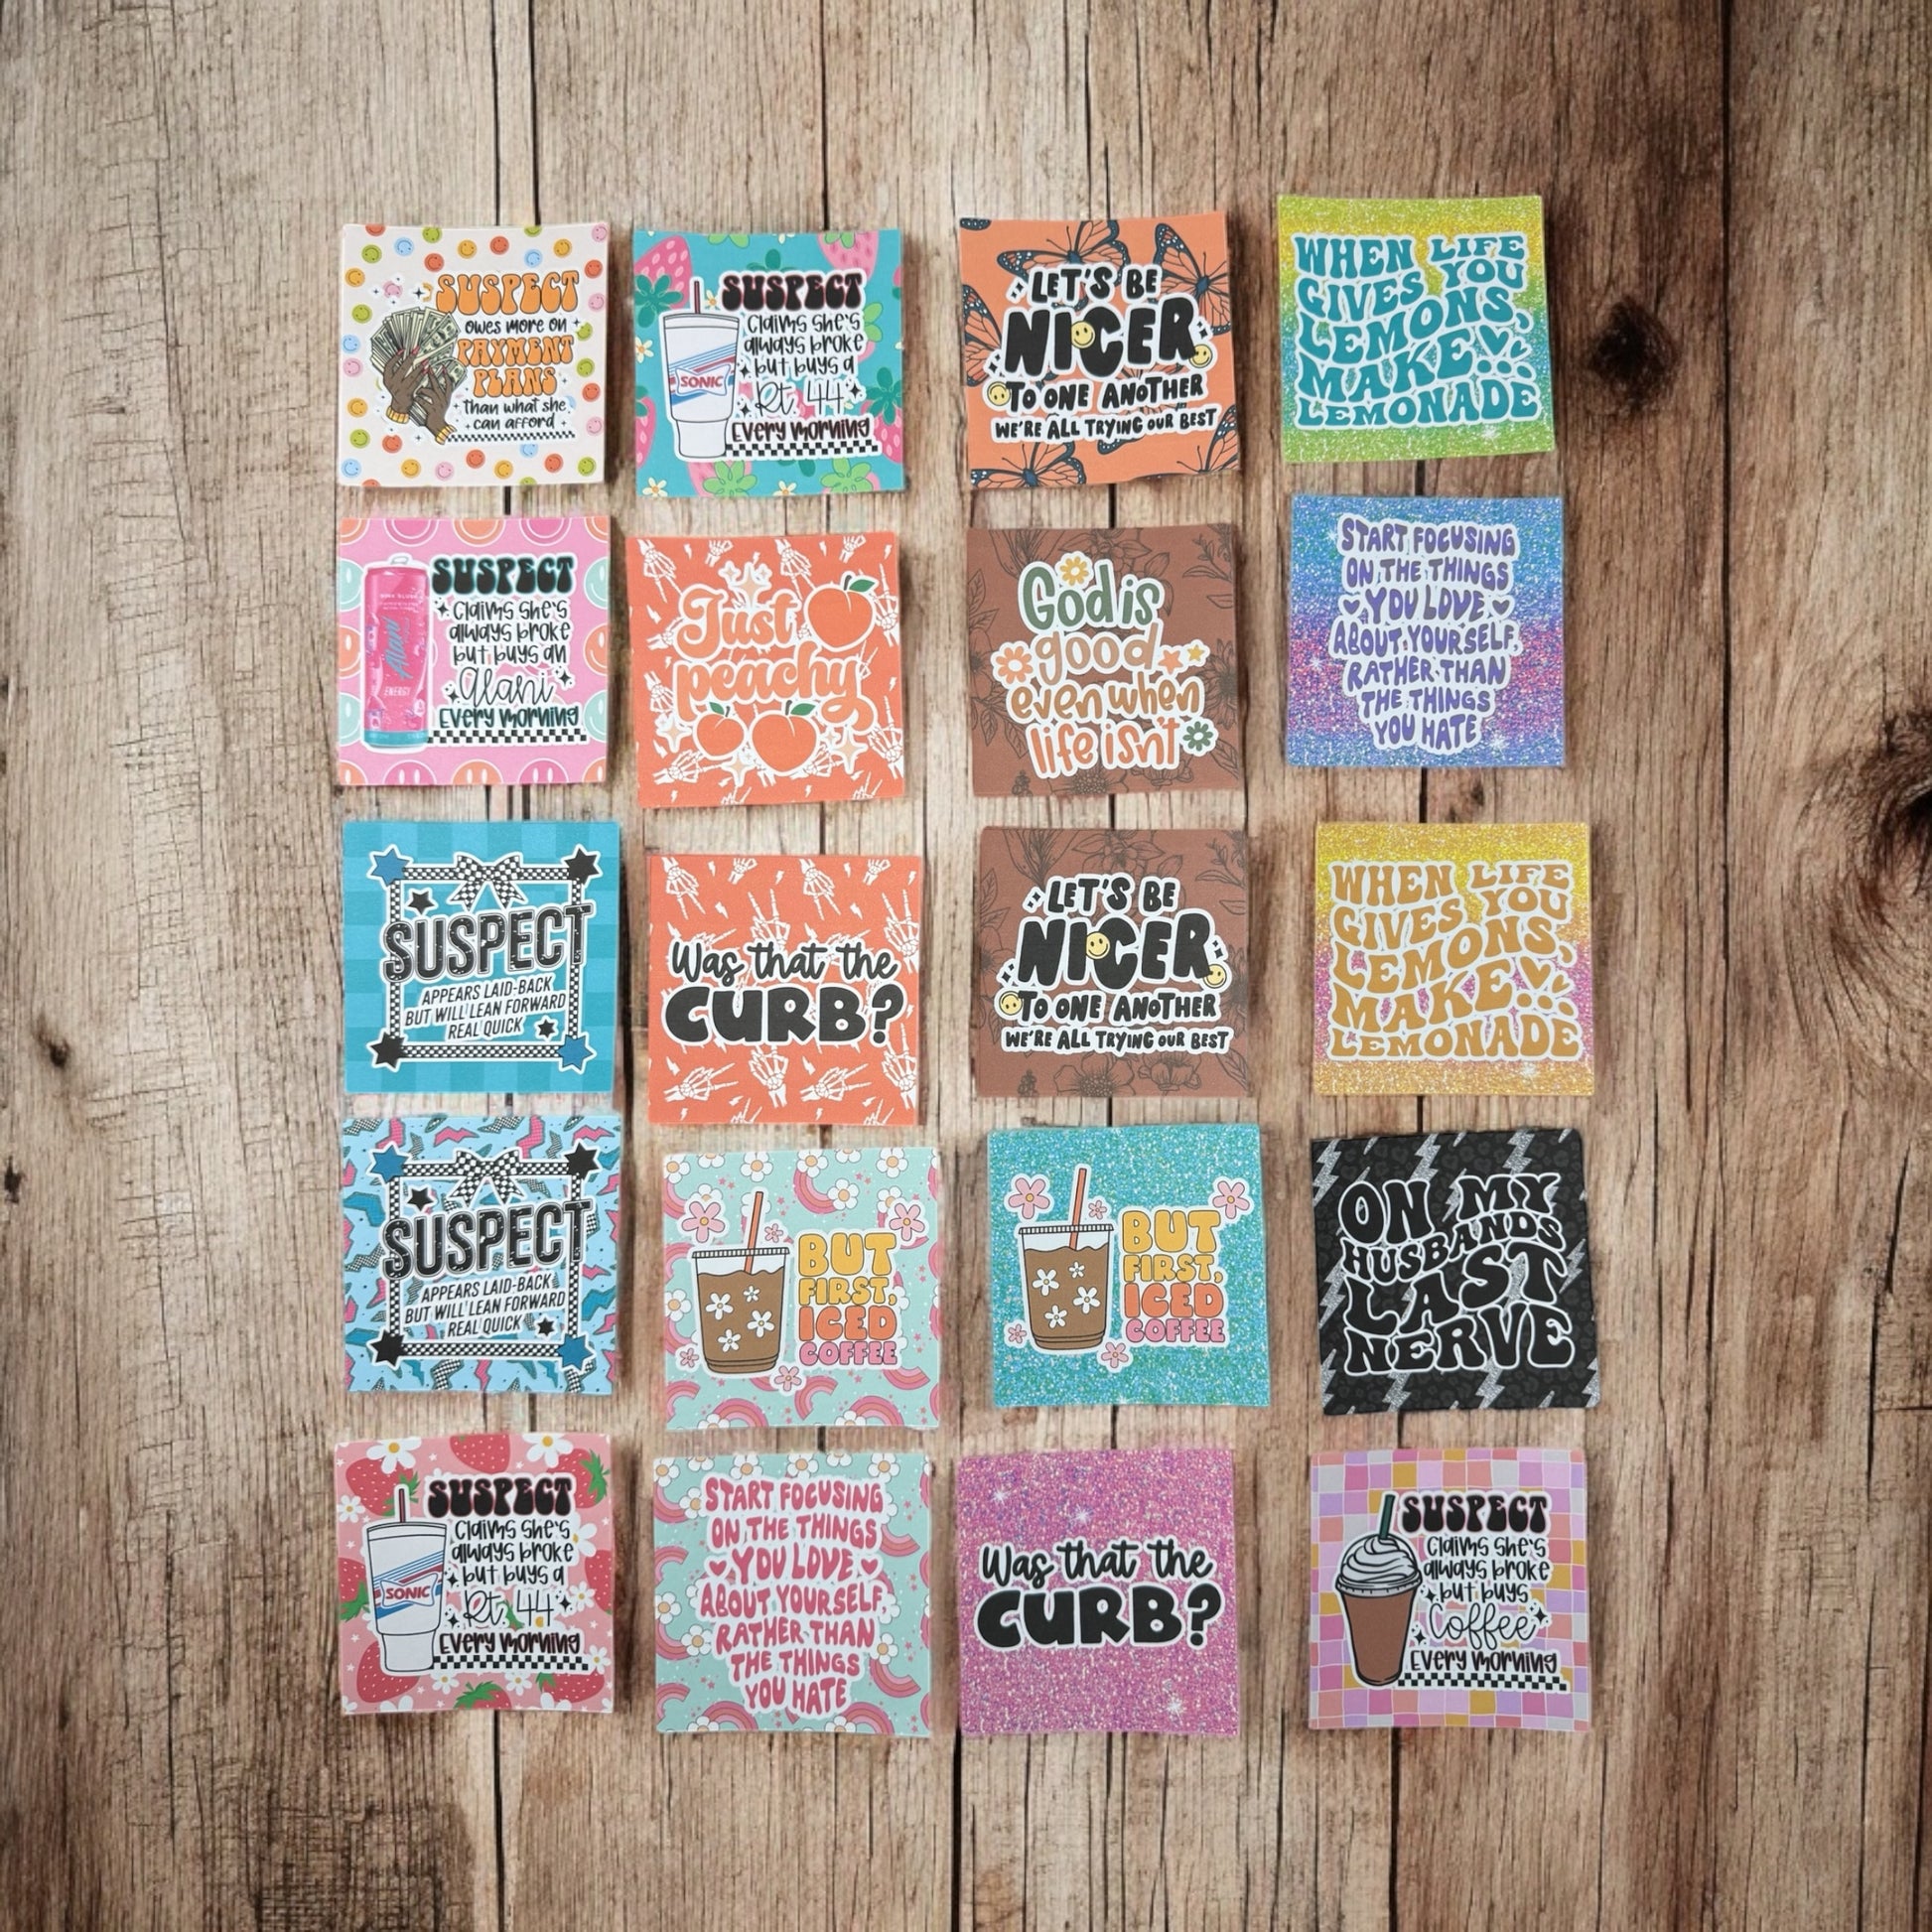 SUSPECT
owes more on
PAYMENT
PLANS
than what she
can afford
SONIC
SUSPECT
claims she's
always broke
but buys a
Rt. 44
Every morning
LET'S BE
NICER
TO ONE ANOTHER
WE'RE ALL TRYING OUR BEST
WHEN LIFE
GIVES YOU
LEMONS,
MAKE
LEMONADE
Alani
ENERGY
SUSPECT
claims she's
always broke
but buys an
Alani
Every morning
Just
peachy
God is
good
even when
life isn't
START FOCUSING
ON THE THINGS
YOU LOVE
ABOUT YOURSELF,
RATHER THAN
THE THINGS
YOU HATE
SUSPECT
APPEARS LAID-BACK
BUT WILL LEAN FORWARD
REAL QUICK
Was that the
CURB?
LET'S BE
NICER
TO ONE ANOTHER
WE'RE ALL TRYING OUR BEST
WHEN LIFE
GIVES YOU
LEMONS,
MAKE
LEMONADE
SUSPECT
APPEARS LAID-BACK
BUT WILL LEAN FORWARD
REAL QUICK
BUT
FIRST,
ICED
COFFEE
BUT
FIRST,
ICED
COFFEE
ON MY
HUSBANDS
LAST
NERVE
SONIC
SUSPECT
claims she's
always broke
but buys a
Rt. 44
Every morning
START FOCUSING
ON THE THINGS
YOU LOVE
ABOUT YOURSELF,
RATHER THAN
THE THINGS
YOU HATE
Was that the
CURB?
SUSPECT
claims she's
always broke
but buys
Coffee
Every morning